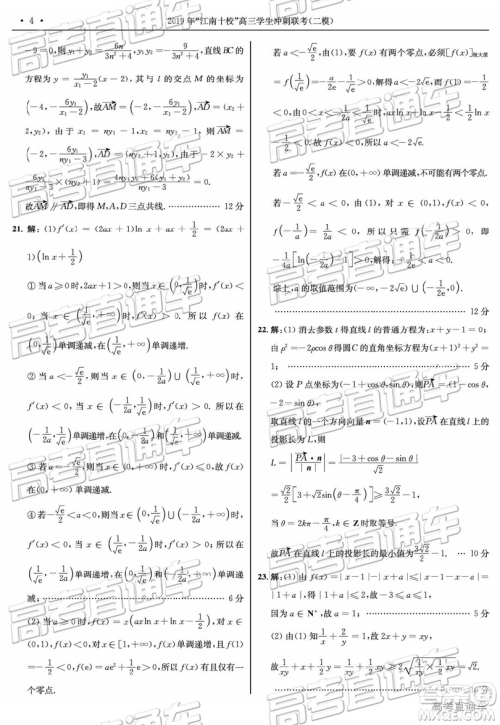 · 4 · 2019 年“江南十校”高三学生冲刺联考(二模)
-9=0,则 y₁+y₂=-6n/(3n²+4), y₁y₂=-9/(3n²+4), 直线 BC 的
方程为 y=y₁/(x₁-2)(x-2), 其与 l 的交点 M 的坐标为
(-4,-6y₁/(x₁-2)), 故AM=(-2,-6y₁/(x₁-2)), AD=(x₂+
2,y₂), 由于 x₁=ny₁-1, x₂=ny₂-1, 故 AM=
(-2,-6y₁/(ny₁-3)), AD=(ny₂+1,y₂), 由于 -2×y₂+
6y₁/(ny₁-3)×(ny₂+1)=(4ny₁y₂+6(y₁+y₂))/(ny₁-3)=0.
故AM∥AD,即得 M,A,D 三点共线. 12 分
21. 解: (1)f′(x)=(2ax+1)ln x+ax+1/2=(2ax+
1)(ln x+1/2)
① 当 a≥0 时,2ax+1>0, 在(0,1/√e)时,f′(x)<
0; 当 x∈(1/√e,+∞)时,f′(x)>0. 所以在
(0,1/√e)单调递减,在(1/√e,+∞)单调递增.
② 当 a<-√e/2 时,在(0,-1/2a)∪(1/√e,+∞)时,
f′(x)<0, 当 x∈(-1/2a,1/√e)时,f′(x)>0. 所以在
(-1/2a,1/√e)单调递增,在(0,-1/2a),(1/√e,+∞)单调递减.
③ 若 a=-√e/2, 在(0,+∞)时,f′(x)≤0, 故 f(x)
在(0,+∞)单调递减.
④若 -√e/2<a<0, 当 x∈(0,1/√e)∪(-1/2a,+∞)时,
f′(x)<0, 当 x∈(1/√e,-1/2a)时,f′(x)>0. 所以在
(1/√e,-1/2a)单调递增,在(0,1/√e),(-1/2a,+∞)单调
递减. 6 分
(2)当 a≥0 时, f(x)=x(axln x+ln x-1/2), 对 x∈
(0,1),f(x)<0,对 x∈[1,+∞),f(x)单调递增,且 f(1)
=-1/2<0,f(e)=ae²+1/2e>0,因此,f(x)此时有且只有一
个零点.
若 a<-√e/2,由(1),要 f(x)有两个零点,必须[f(x)]极大值
=f(1/√e)=-a/2e-1/√e>0,解得:a<-2√e. 而 f(1)=-1/2
<0,由 0<x<-1/2a<1/√e时,axln x+ln x-1/2<-1/2 ln x
+ln x-1/2<0. 故 f(x)<0,所以 a<-2√e.
若 a=-√e/2 在(0,+∞)单调递减,不可能有两个零点.
若 -√e/2<a<0, 由(1)f(1/√e)=-a/2e-1/√e<0,
f(-1/a)=1/2a<0, 所以只需 f(-1/2a)>0, 即
-1/4a[ln(-1/2a)-1]>0,解得:-1/2e<a<0.
综上,a 的范围为(-∞,-2√e)∪(-1/2e,0).
12 分
22. 解:(1) 消去参数 t 得直线的普通方程为:x+y-1=0;
由 ρ²=-2ρcos θ 得圆 C 的直角坐标方程为(x+1)²+y²=
1; 5 分
(2) 设 P 点坐标为(-1+cos θ,sin θ),则PA=(-1-cos θ,
-2-sin θ)
取直线 l 的一个方向向量 n=(-1,1),设PA在直线 l 上
的投影长为 L,则
L=|PA·n/|n||=|-3+cos θ-sin θ|/√2
=√2/2[3+√2sin(θ-π/4)]≥3√2/2-1,
当 θ=2kπ-π/4,(k∈Z)时取等号.
故PA在直线 l 上的投影长的最小值为3√2/2-1. 10 分
23. 解:(1) 由 f(x)=|x-1|-|x+a|≤|x-1-x-a|=
|1+a|,得|1+a|≤2,故 -3≤a≤1,
因为 a∈N⁺,故 a=1; 5 分
(2) 由(1)知 1/x+2/y=1, 故 2x+y=xy,